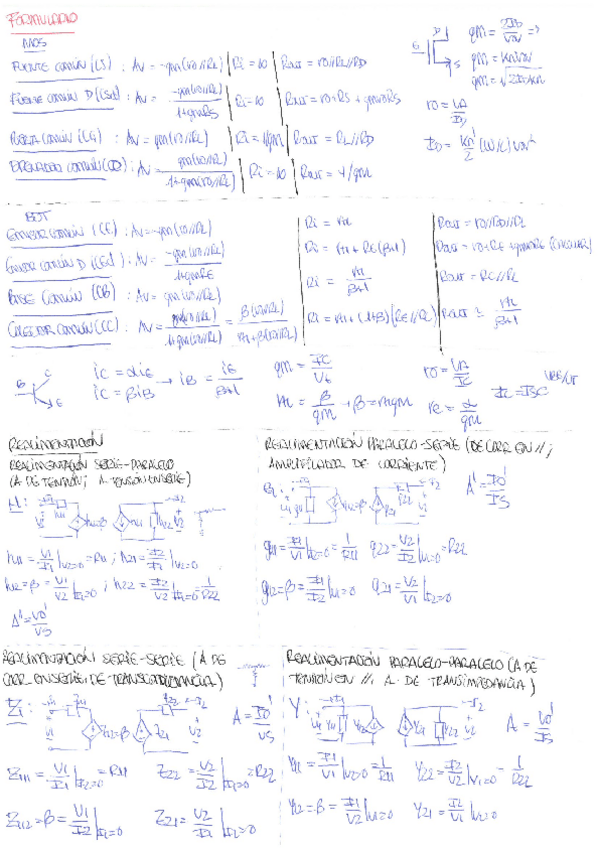 FORMULARIO
MOS
FUENTE COMÚN (CS) : Av = -gm(ro//RL) | Ri = ∞ | Rout = ro//RL//RD
FUENTE COMÚN D (CSD) : Av = -gm(ro//RL) / 1+gmRS | Ri = ∞ | Rout = ro+RS+gmroRS
PUERTA COMÚN (CG) : Av = gm(ro//RL) | Ri = 1/gm | Rout = RL//RD
DRENADOR COMÚN (CD) : Av = gm(ro//RL) / 1+gm(ro//RL) | Ri = ∞ | Rout = 1/gm
G D S
gm = 2ID/Vov =>
gm = KnVov
gm = √2IDKn
ro = VA/ID
ID = Kn'/2 (W/L) Vov²
BJT
EMISOR COMÚN (CE) : Av = -gm(ro//RL) | Ri = rπ | Rout = ro//RC//RL
EMISOR COMÚN D (CED) : Av = -gm(ro//RL) / 1+gmRE | Ri = rπ+RE(β+1)
BASE COMÚN (CB) : Av = gm(ro//RL) | Ri = rπ/β+1 | Rout = RC//RL
COLECTOR COMÚN (CC) : Av = gm(ro//RL) / 1+gm(ro//RL) = β(ro//RL) / rπ+β(ro//RL) | Ri = rπ+(1+β)(RE//RL) | Rout ≅ rπ/β+1
B C E
iC = αiE
iC = βiB → iB = iE/β+1
gm = IC/Vt
rπ = β/gm → β = rπgm
ro = VA/IC
re = α/gm
IC = ISe^VBE/VT
REALIMENTACIÓN
REALIMENTACIÓN SERIE-PARALELO
(A DE TENSIÓN; A TENSIÓN EN SERIE)
H:
h11 = V1/I1 |V2=0 = R11 ; h21 = I2/I1 |V2=0
h12 = β = V1/V2 |I1=0 ; h22 = I2/V2 |I1=0 = 1/R22
A' = Vo'/VS
REALIMENTACIÓN PARALELO-SERIE (DE CORR EN //;
AMPLIFICADOR DE CORRIENTE)
G:
A' = Io'/IS
g11 = I1/V1 |I2=0 = 1/R11 g22 = V2/I2 |V1=0 = R22
g12 = β = I1/I2 |V1=0 g21 = V2/V1 |I2=0
REALIMENTACIÓN SERIE-SERIE (A DE
CORR EN SERIE; DE TRANSCONDUCTANCIA)
Z:
A = Io'/VS
Z11 = V1/I1 |I2=0 = R11 Z22 = V2/I2 |I1=0 = R22
Z12 = β = V1/I2 |I1=0 Z21 = V2/I1 |I2=0
REALIMENTACIÓN PARALELO-PARALELO (A DE
TENSIÓN EN //, A DE TRANSIMPEDANCIA)
Y:
A = Vo'/IS
Y11 = I1/V1 |V2=0 = 1/R11 Y22 = I2/V2 |V1=0 = 1/R22
Y12 = β = I1/V2 |V1=0 Y21 = I2/V1 |V2=0